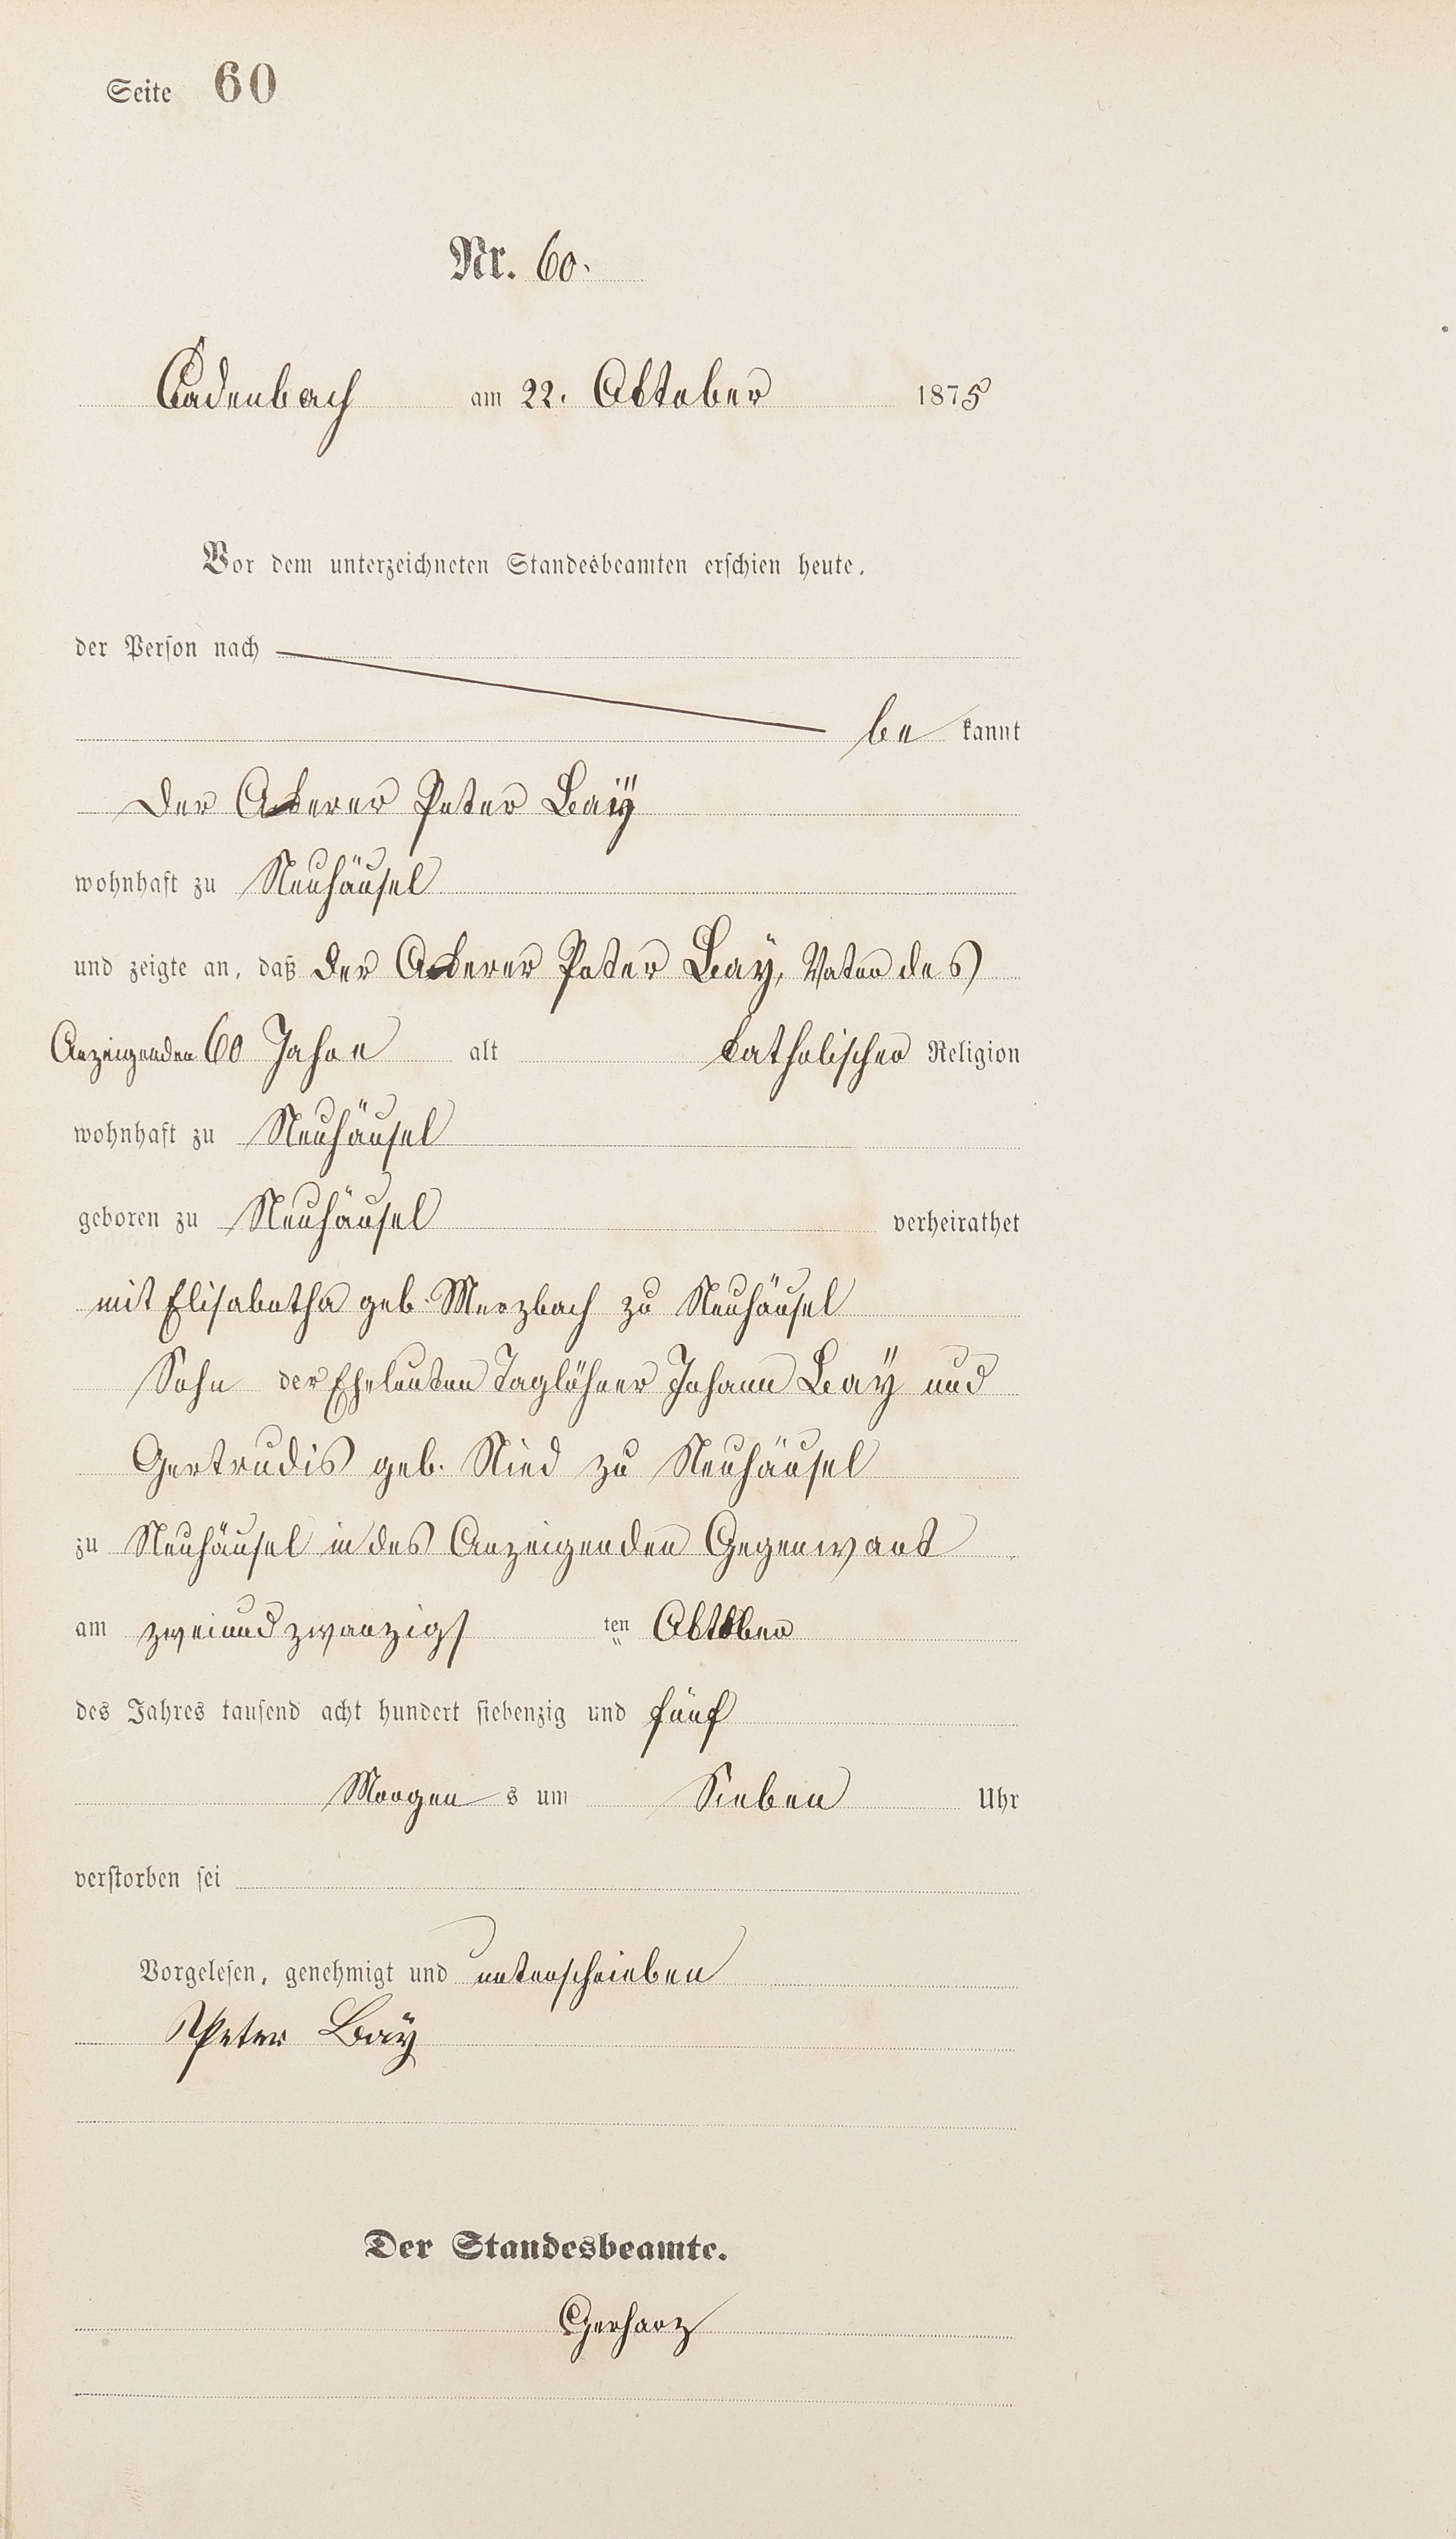 Seite 60
Nr. 60.
Cadenbach am 22. Oktober 1875
Vor dem unterzeichneten Standesbeamten erschien heute,
der Person nach
be kannt
der Ackerer Peter Baÿ
wohnhaft zu Neuhäusel
und zeigte an, daß der Ackerer Peter Baÿ, Vater des
Anzeigenden 60 Jahre alt katholischer Religion
wohnhaft zu Neuhäusel
geboren zu Neuhäusel verheirathet
mit Elisabetha geb. Merzbach zu Neuhäusel
Sohn der Eheleuten Taglöhner Johann Baÿ und
Gertrudis geb. Nied zu Neuhäusel
zu Neuhäusel in des Anzeigenden Gegenwart
am zweiundzwanzigs ten Oktober
des Jahres tausend acht hundert siebenzig und fünf
Morgen s um Sieben Uhr
verstorben sei
Vorgelesen, genehmigt und unterschrieben
Peter Baÿ
Der Standesbeamte.
Gerharz